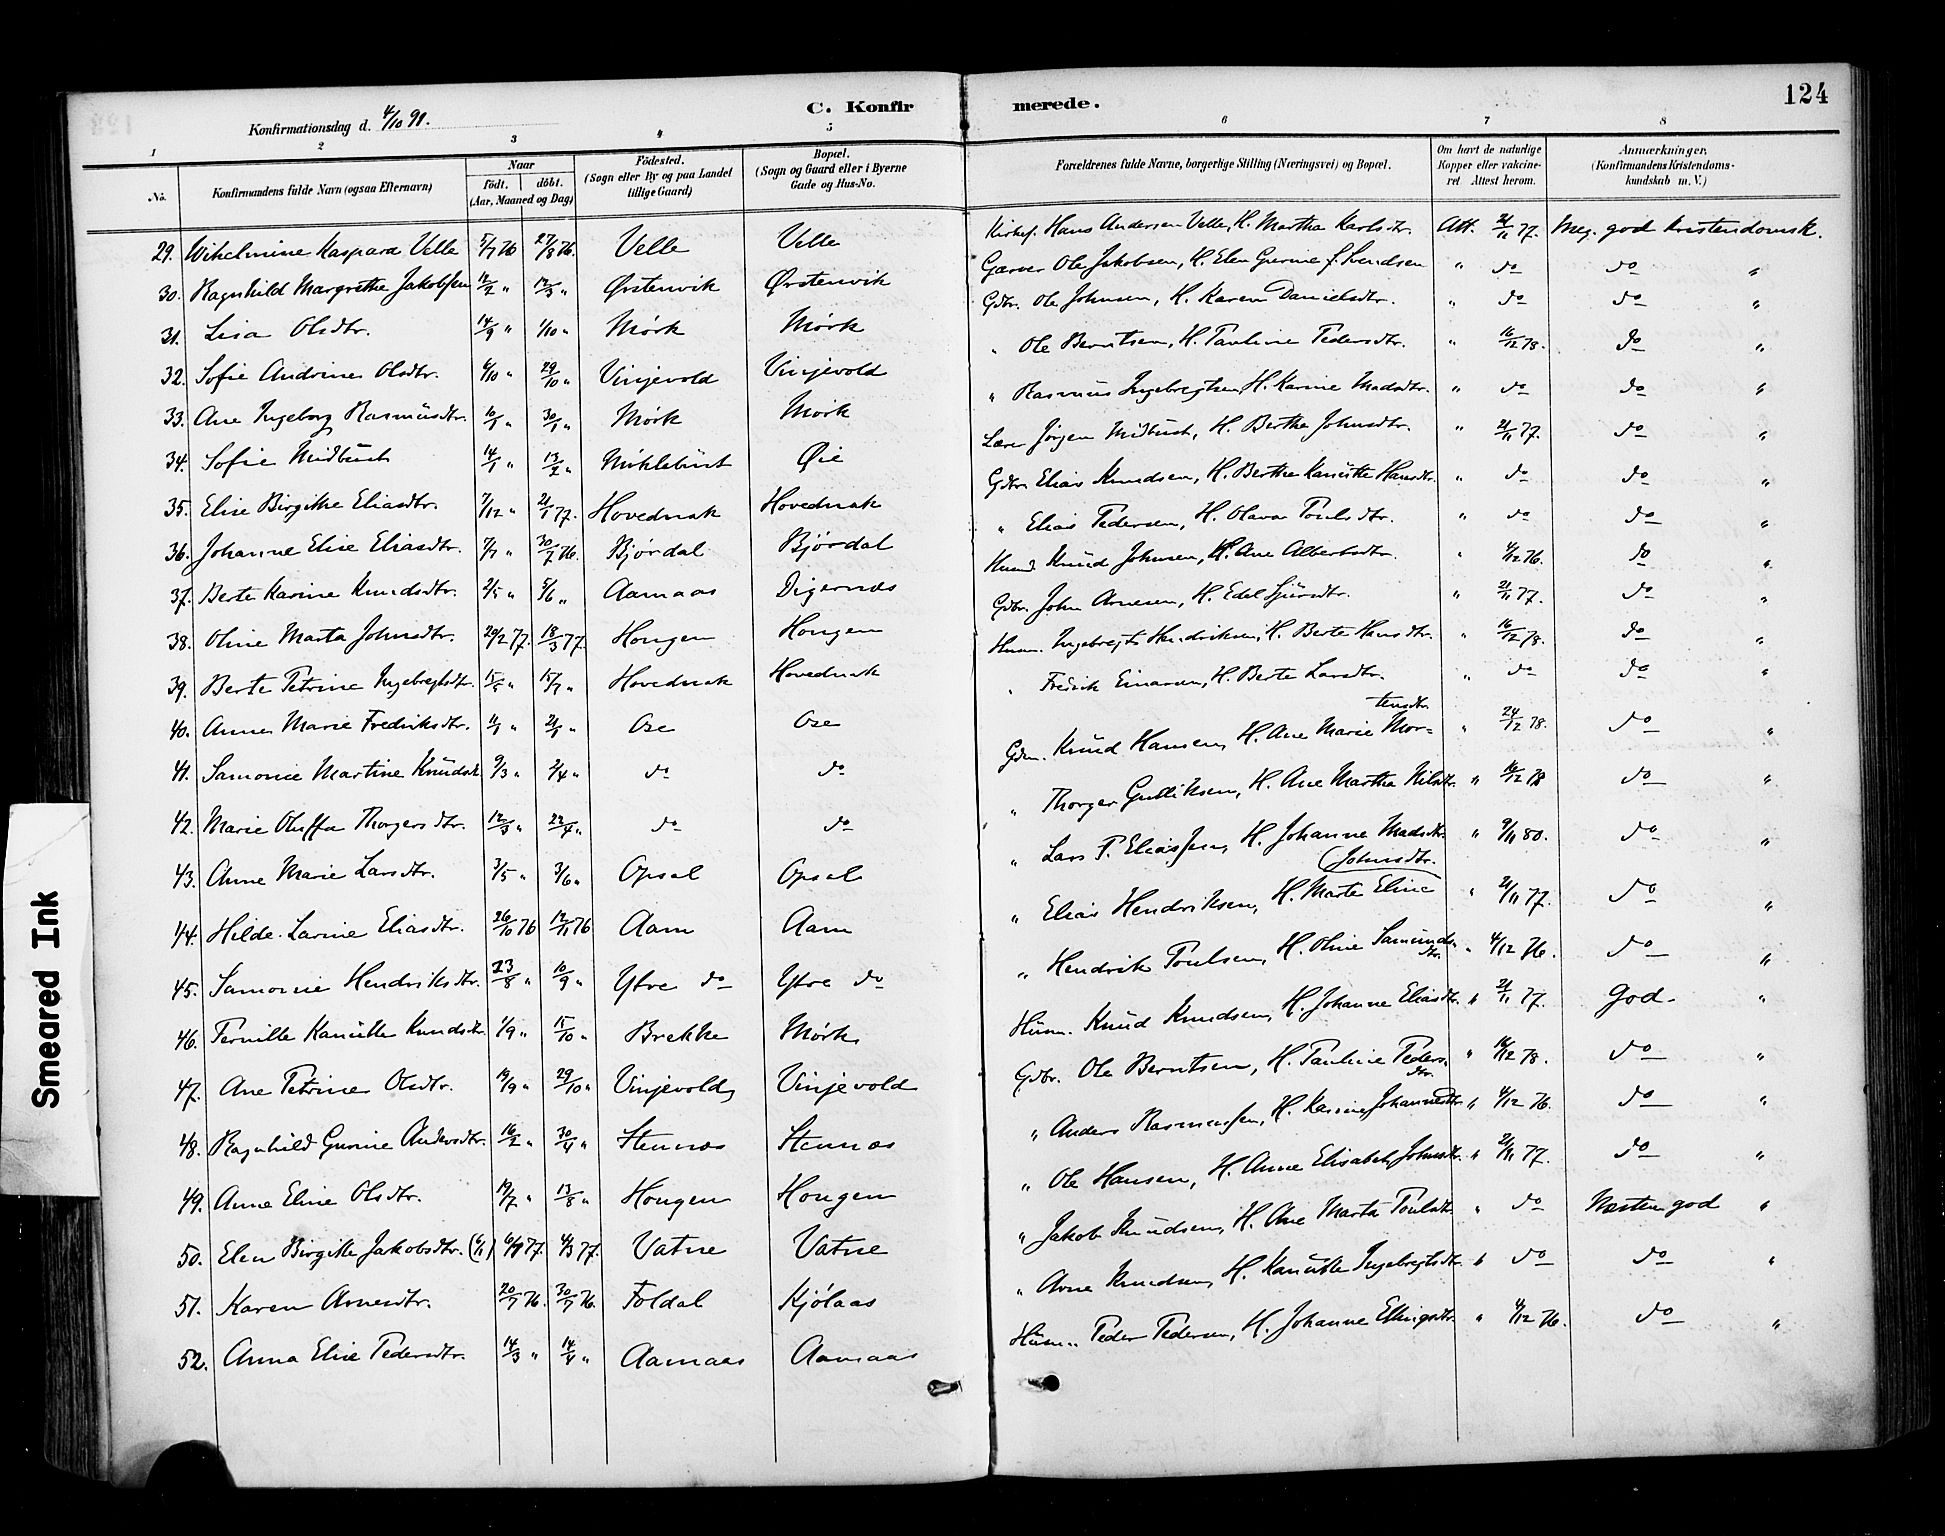 124
C. Konfirmerede.
Konfirmationsdag d. 4/10 91.
1 2 3 4 5 6 7 8
No. Konfirmandens fulde Navn (ogsaa Efternavn) Naar födt. döbt. (Aar, Maaned og Dag) Födested. (Sogn eller By og paa Landet tillige Gaard) Bopæl. (Sogn og Gaard eller i Byerne Gade og Hus-No. Forældrenes fulde Navne, borgerlige Stilling (Næringsvei) og Bopæl. Om havt de naturlige Kopper eller vakcineret Attest herom. Anmærkninger, (Konfirmandens Kristendomskundskab m. V.)
29. Wihelmine Kaspara Velle 5/7 76 27/8 76. Velle Velle Kirkes. Hans Andersen Velle, H. Martha Karlsdtr. Att. 21/11 77. Meg. god kristendomsk.
30. Ragnhild Margrethe Jakobsen 12/2 " 12/3 " Ørstenvik Ørstenvik Garver Ole Jakobsen, H. Elen Gurine f. Svendsen " do do "
31. Lisa Olsdtr. 14/9 " 1/10 " Mørk Mørk Gdbr. Ole Johnsen, H. Karen Danielsdtr. " do do "
32. Sofie Andrine Olsdtr. 6/10 " 29/10 " Vinjevold Vinjevold " Ole Berntsen, H. Pauline Pedersdtr. " 16/12 78. do "
33. Ane Ingeborg Rasmusdtr. 10/1 " 30/1 " Mørk Mørk " Rasmus Ingebregtsen, H. Karine Madsdtr. " do do "
34. Sofie Midbust 14/1 " 13/2 " Miklebust Øie Lærer Jørgen Midbust, H. Berthe Johnsdtr. " 21/11 77. do "
35. Elise Birgitte Eliasdtr. 7/12 " 21/1 77. Hovednak Hovednak Gdbr. Elias Knudsen, H. Berthe Kanutte Hansdtr. " do do "
36. Johanne Elise Eliasdtr. 7/7 " 30/7 76. Bjørdal Bjørdal " Elias Pedersen, H. Olava Poulsdtr. " do do "
37. Berte Karine Knudsdtr. 2/5 " 5/6 " Aamaas Digernæs Husm. Knud Johnsen, H. Ane Albertsdtr. " 4/12 76. do "
38. Oline Marta Johnsdtr. 20/2 77. 18/3 77. Hougen Hougen Gdbr. John Arnesen, H. Edel Sjursdtr. " 21/11 77. do "
39. Berte Petrine Ingebregtsdtr. 15/5 " 15/7 " Hovednak Hovednak Husm. Ingebregt Hendriksen, H. Berte Hansdtr. " 16/12 78. do "
40. Anne Marie Fredriksdtr. 11/1 " 21/1 " Ose Ose " Fredrik Einarsen, H. Berte Larsdtr. " do do "
41. Samonie Martine Knudsdtr. 9/3 " 2/4 " do do Gdm. Knud Hansen, H. Ane Marie Mortensdtr. " 24/12 78. do "
42. Marie Oluffa Thorgersdtr. 12/3 " 22/4 " do do " Thorger Gulliksen, H. Ane Martha Nilsdtr. " 16/12 78 do "
43. Anne Marie Larsdtr. 3/5 " 3/6 " Opsal Opsal " Lars P. Eliassen, H. Johanne Madsdtr. " 9/11 80. do "
44. Hilde Larine Eliasdtr. 26/10 76 12/11 76 Aam Aam " Elias Hendriksen, H. Marte Eline Johnsdtr. " 21/11 77. do "
45. Samonie Hendriksdtr. 23/8 " 10/9 " Ytre do Ytre do " Hendrik Poulsen, H. Oline Samundsdtr. " 4/12 76. do "
46. Pernille Kanutte Knudsdtr. 1/9 " 15/10 " Brekke Mørk Husm. Knud Knudsen, H. Johanne Eliasdtr. " 21/11 77. god. "
47. Ane Petrine Olsdtr. 19/9 " 29/10 " Vinjevold Vinjevold Gdbr. Ole Berntsen, H. Pauline Pedersdtr. " 16/12 78. do "
48. Ragnhild Gurine Andersdtr. 16/2 " 30/4 " Stennæs Stennæs " Anders Rasmussen, H. Karine Johannesdtr. " 4/12 76. do "
49. Anne Eline Olsdtr. 19/7 " 13/8 " Hougen Hougen " Ole Hansen, H. Anne Elisabeth Johnsdtr. " 21/11 77. do "
50. Elen Birgitte Jakobsdtr. (6/1) 6/1 77. 4/3 77. Vatne Vatne " Jakob Knudsen, H. Ane Marta Poulsdtr. " do Næsten god "
51. Karen Arnesdtr. 20/7 76. 30/7 76. Foldal Kjølaas " Arne Knudsen, H. Kanutte Ingebregtsdtr. " do do "
52. Anna Elise Pedersdtr. 14/3 " 14/4 " Aamaas Aamaas Husm. Peder Pedersen, H. Johanne Ellingsdtr. " 4/12 76. do "
Smeared Ink